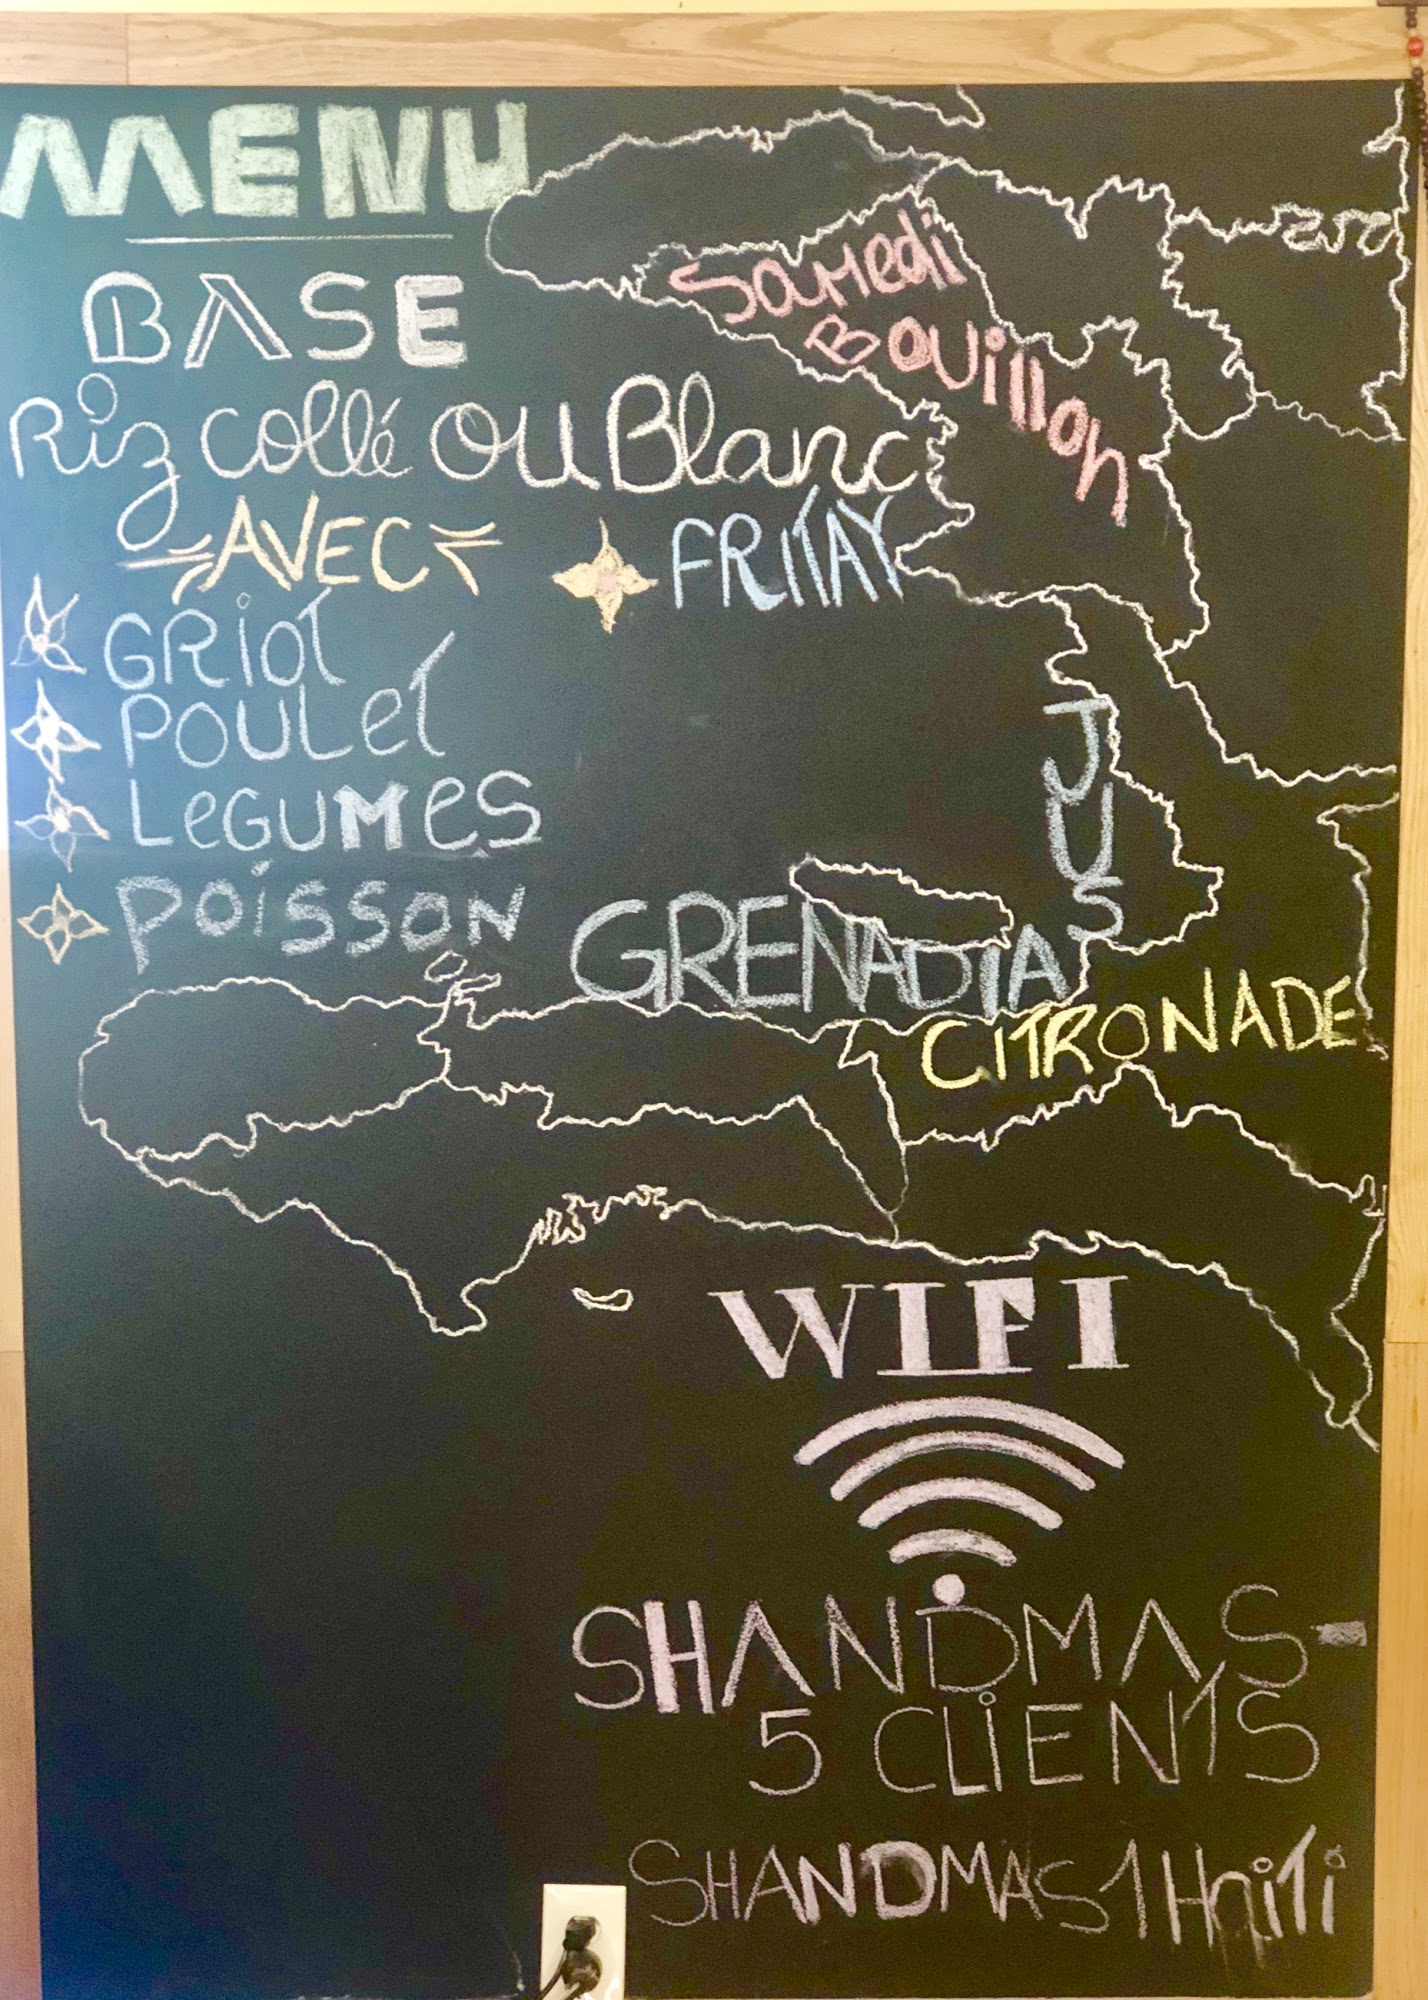 MENU
BASE
Riz collé OU Blanc
AVEC
GRIOT
POULET
LEGUMES
POISSON
FRITAY
Samedi
BOUillon
JUS
GRENADIA
CITRONADE
WIFI
SHANDMAS-
5 CLIENTS
SHANDMAS1Haiti